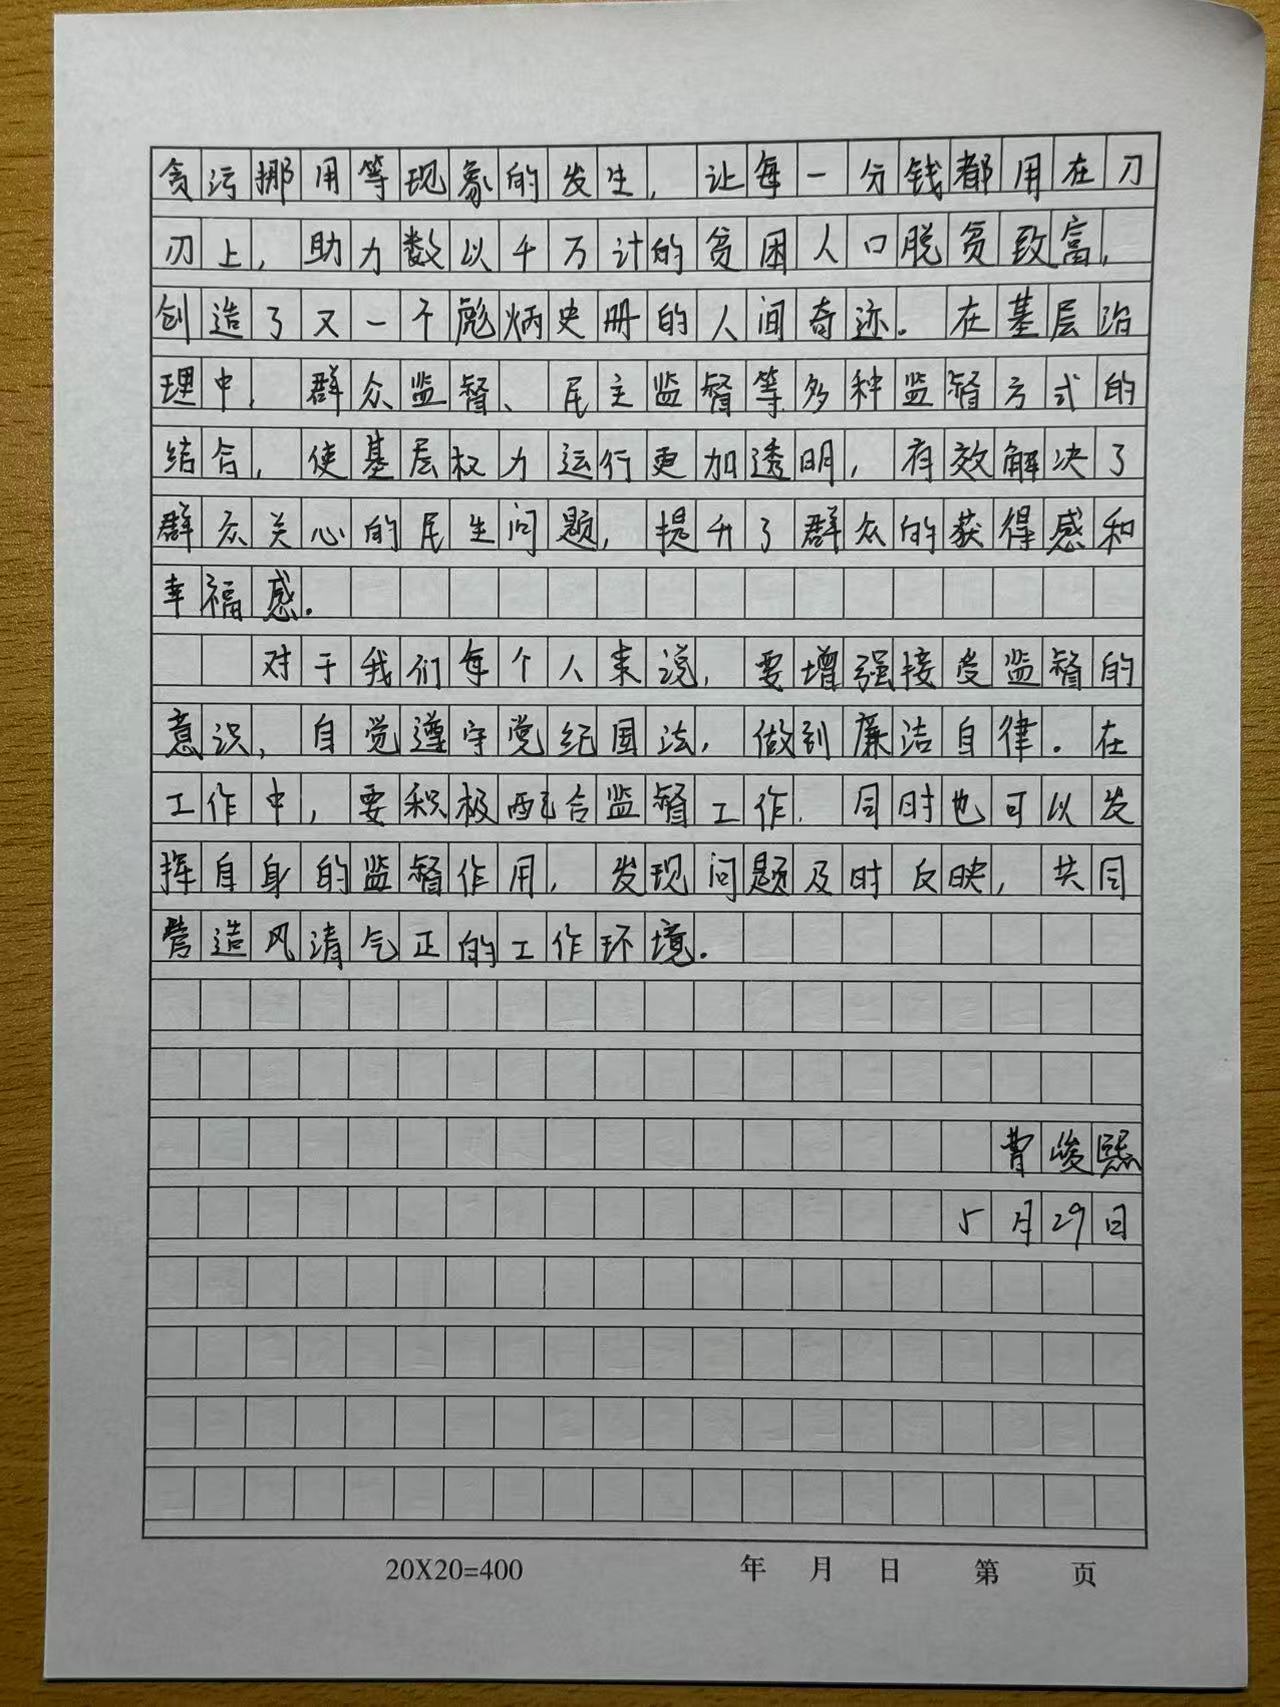 贪污挪用等现象的发生，让每一分钱都用在刀
刃上，助力数以千万计的贫困人口脱贫致富，
创造了又一个彪炳史册的人间奇迹。在基层治
理中，群众监督、民主监督等多种监督方式的
结合，使基层权力运行更加透明，有效解决了
群众关心的民生问题，提升了群众的获得感和
幸福感。
对于我们每个人来说，要增强接受监督的
意识，自觉遵守党纪国法，做到廉洁自律。在
工作中，要积极配合监督工作.同时也可以发
挥自身的监督作用，发现问题及时反映，共同
营造风清气正的工作环境.
曹峻熙
5月29日
20X20=400 年 月 日 第 页